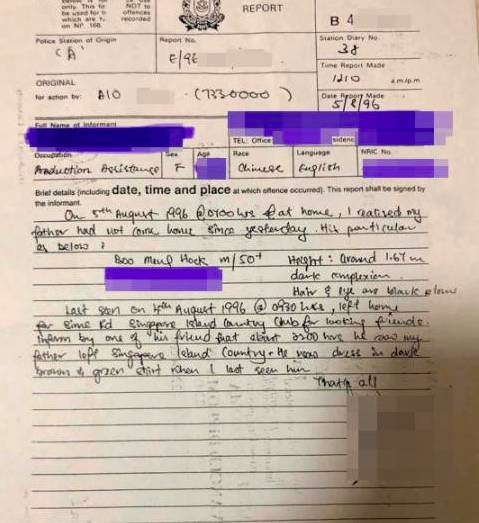 only. This fo NOT to
be used for offences
which are t recorded
on NP 168.
REPORT
B 4
Police Station of Origin
'A'
Report No.
E/96
Station Diary No.
38
Time Report Made
1210 a.m/p.m
ORIGINAL
for action by: AIO (7330000)
Date Report Made
5/8/96
Full Name of Informant
TEL: Office
Occupation
Production Assistance
Sex
F
Age
Race
Chinese
Language
English
NRIC No.
Brief details (including date, time and place at which offence occurred). This report shall be signed by
the informant.
On 5th August 1996 @ 0700 hrs at home, I realised my
father had not come home since yesterday. His particular
as below:
Boo Meng Hock m/50+ Height: around 1.67m
dark complexion
Hair & eye are black
Last seen on 4th August 1996 @ 0930 hrs, left home
for Sime Rd Singapore Island Country Club for friends.
Inform by one of his friend that about 2200 hrs he saw my
father left Singapore Island Country. He was dress in dark
brown & green shirt when I last seen him.
That's all